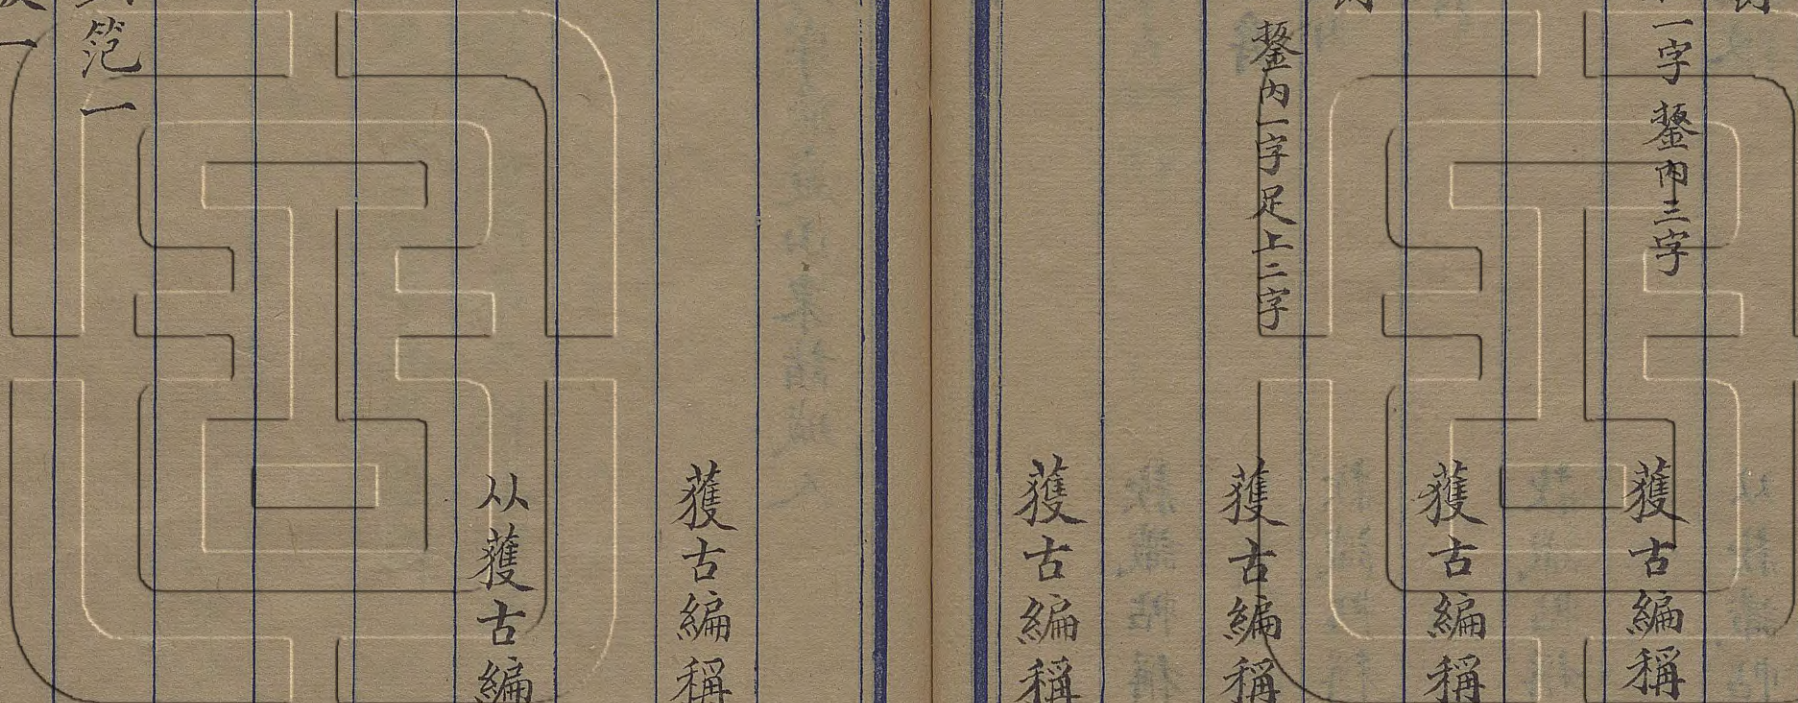 一字 鋬内三字
獲古編稱
獲古編稱
鋬内一字足上二字
獲古編稱
獲古編稱
獲古編稱
从獲古編
笵一
一